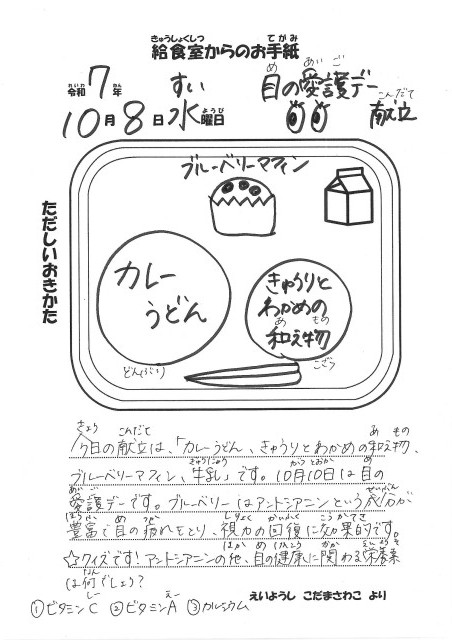 給食室からのお手紙
令和7年
10月8日水曜日
目の愛護デー
献立
ただしいおきかた
ブルーベリーマフィン
カレー
うどん
きゅうりと
わかめの
和え物
どんぶり
こざら
今日の献立は、「カレーうどん、きゅうりとわかめの和え物、
ブルーベリーマフィン、牛乳」です。10月10日は目の
愛護デーです。ブルーベリーはアントシアニンという成分が
豊富で目の疲れをとり、視力の回復に効果的です。
☆クイズです!アントシアニンの他、目の健康に関わる栄養素
は何でしょう?
①ビタミンC ②ビタミンA ③カルシウム
えいようし こだまさわこ より